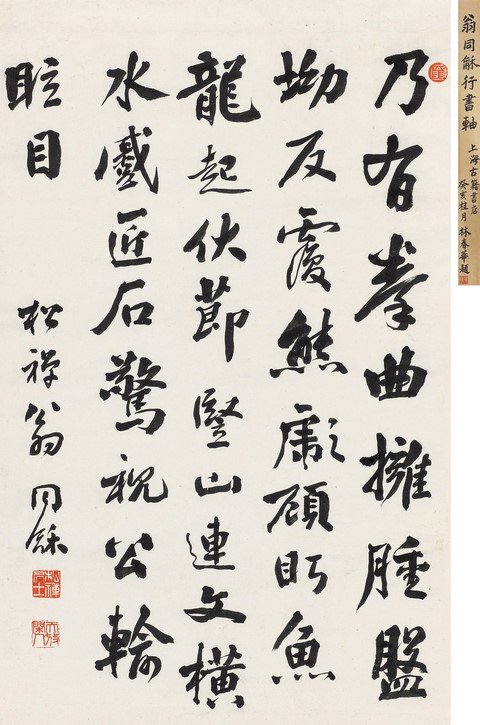 乃有拳曲擁腫盤
坳反覆熊彪顧眄魚
龍起伏節豎山連文橫
水蹙匠石驚視公輸
眩目
松禪翁同龢
松禪居士
翁同龢行書軸
上海古籍書店
癸亥桂月 林春華題